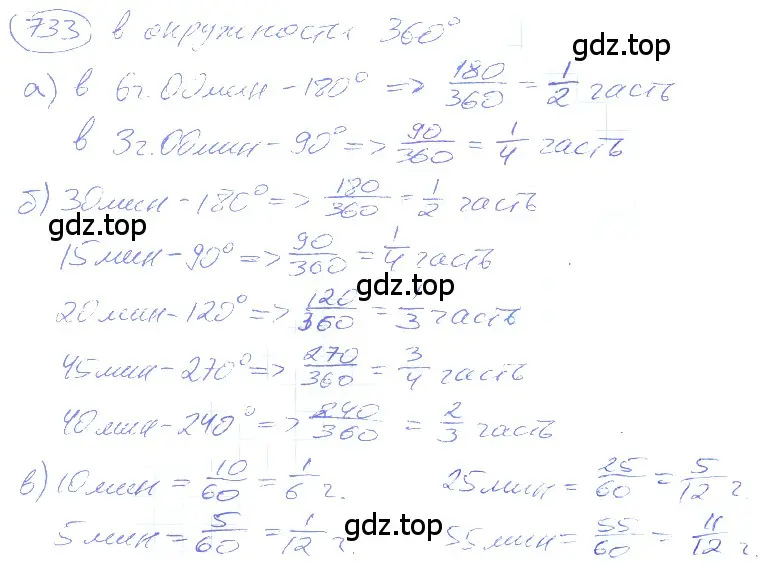 733 в окружности 360°
gdz.top
а) в 6г.00мин - 180° => 180/360 = 1/2 часть
в 3г.00мин - 90° => 90/360 = 1/4 часть
б) 30мин - 180° => 180/360 = 1/2 часть
gdz.top gdz.top
15мин - 90° => 90/360 = 1/4 часть
20мин - 120° => 120/360 = 1/3 часть
45мин - 270° => 270/360 = 3/4 часть
40мин - 240° => 240/360 = 2/3 часть
в) 10мин = 10/60 = 1/6 г. 25мин = 25/60 = 5/12 г.
gdz.top gdz.top
5мин = 5/60 = 1/12 г. 55мин = 55/60 = 11/12 г.